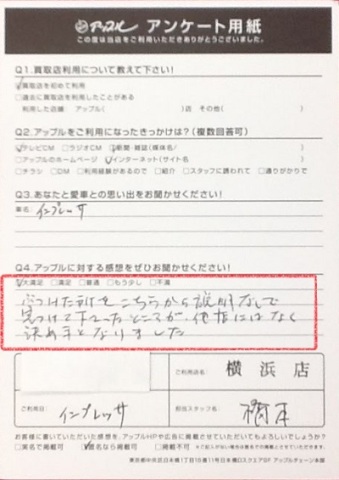 アップル アンケート用紙
この度は当店をご利用いただきありがとうございました。
Q1.買取店利用について教えて下さい!
☑買取店を初めて利用
□過去に買取店を利用したことがある
利用した店舗: アップル( )店 その他( )
Q2.アップルをご利用になったきっかけは?(複数回答可)
☑テレビCM □ラジオCM ☑新聞・雑誌(媒体名/ )
□アップルのホームページ ☑インターネット(サイト名 )
□チラシ □DM □利用経験があるので □紹介 □スタッフに誘われて □通りがかりで
Q3.あなたと愛車との思い出をお聞かせください!
車名: インプレッサ
Q4.アップルに対する感想をぜひお聞かせください!
☑大満足 □満足 □普通 □もう少し □不満
ぶつけた所をこちらから説明なしで
見つけて下さったところが、他店にはなく
決め手となりました
ご利用店名: 横浜店
ご利用日: インプレッサ
担当スタッフ名: 橋本
お客様に書いていただいた感想を、アップルHPや広告に掲載させていただいてもよろしいでしょうか?
□実名で掲載可 ☑匿名なら掲載可 □掲載不可